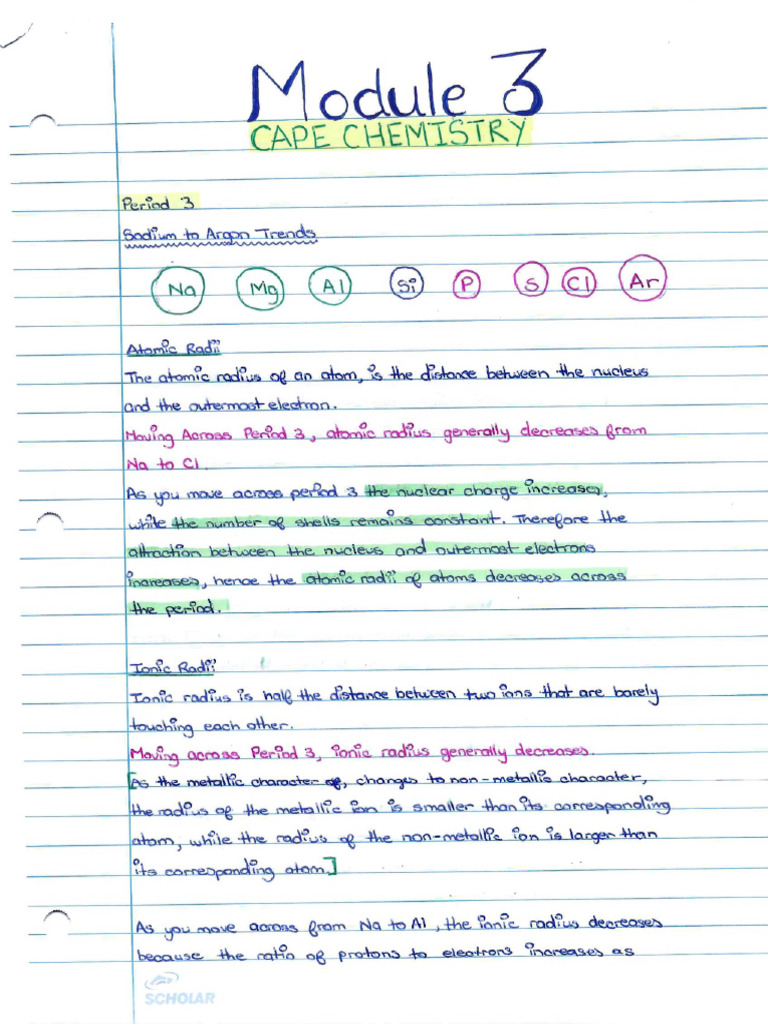 Module 3
CAPE CHEMISTRY
Period 3
Sodium to Argon Trends
Na Mg Al Si P S Cl Ar
Atomic Radii
The atomic radius of an atom, is the distance between the nucleus
and the outermost electron.
Moving Across Period 3, atomic radius generally decreases from
Na to Cl.
As you move across period 3 the nuclear charge increases,
while the number of shells remains constant. Therefore the
attraction between the nucleus and outermost electrons
increases, hence the atomic radii of atoms decreases across
the period.
Ionic Radii
Ionic radius is half the distance between two ions that are barely
touching each other.
Moving across Period 3, ionic radius generally decreases.
[As the metallic character of, changes to non-metallic character,
the radius of the metallic ion is smaller than its corresponding
atom, while the radius of the non-metallic ion is larger than
its corresponding atom.]
As you move across from Na to Al, the ionic radius decreases
because the ratio of protons to electrons increases as
SCHOLAR